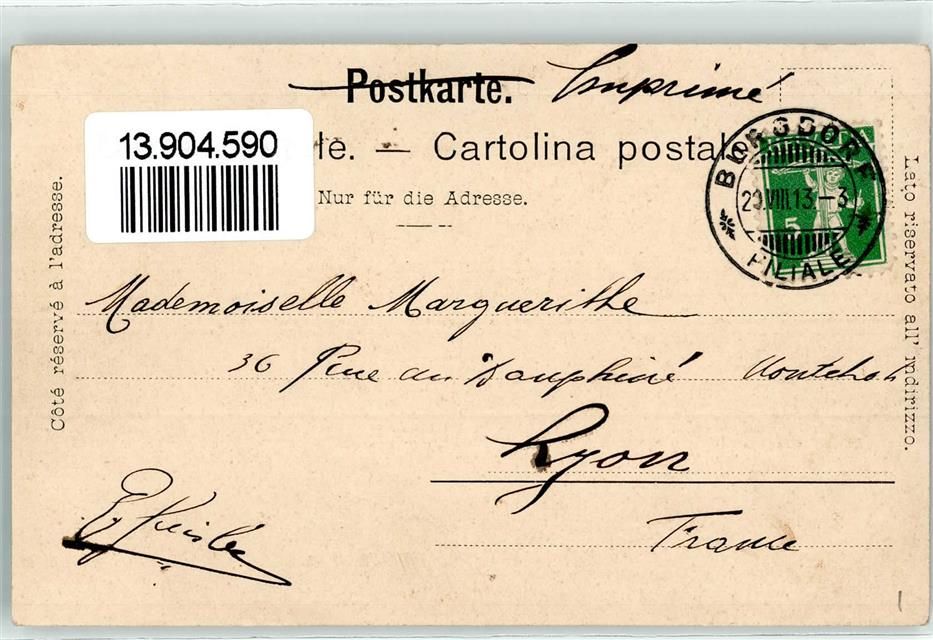 Postkarte. Imprimé
13.904.590
le. — Cartolina postale
Nur für die Adresse.
BURGDORF
29.VIII.13–3
FILIALE
5
Côté réservé à l'adresse.
Lato riservato all' indirizzo.
Mademoiselle Marguerithe
36 Rue du Dauphiné
Lyon
France